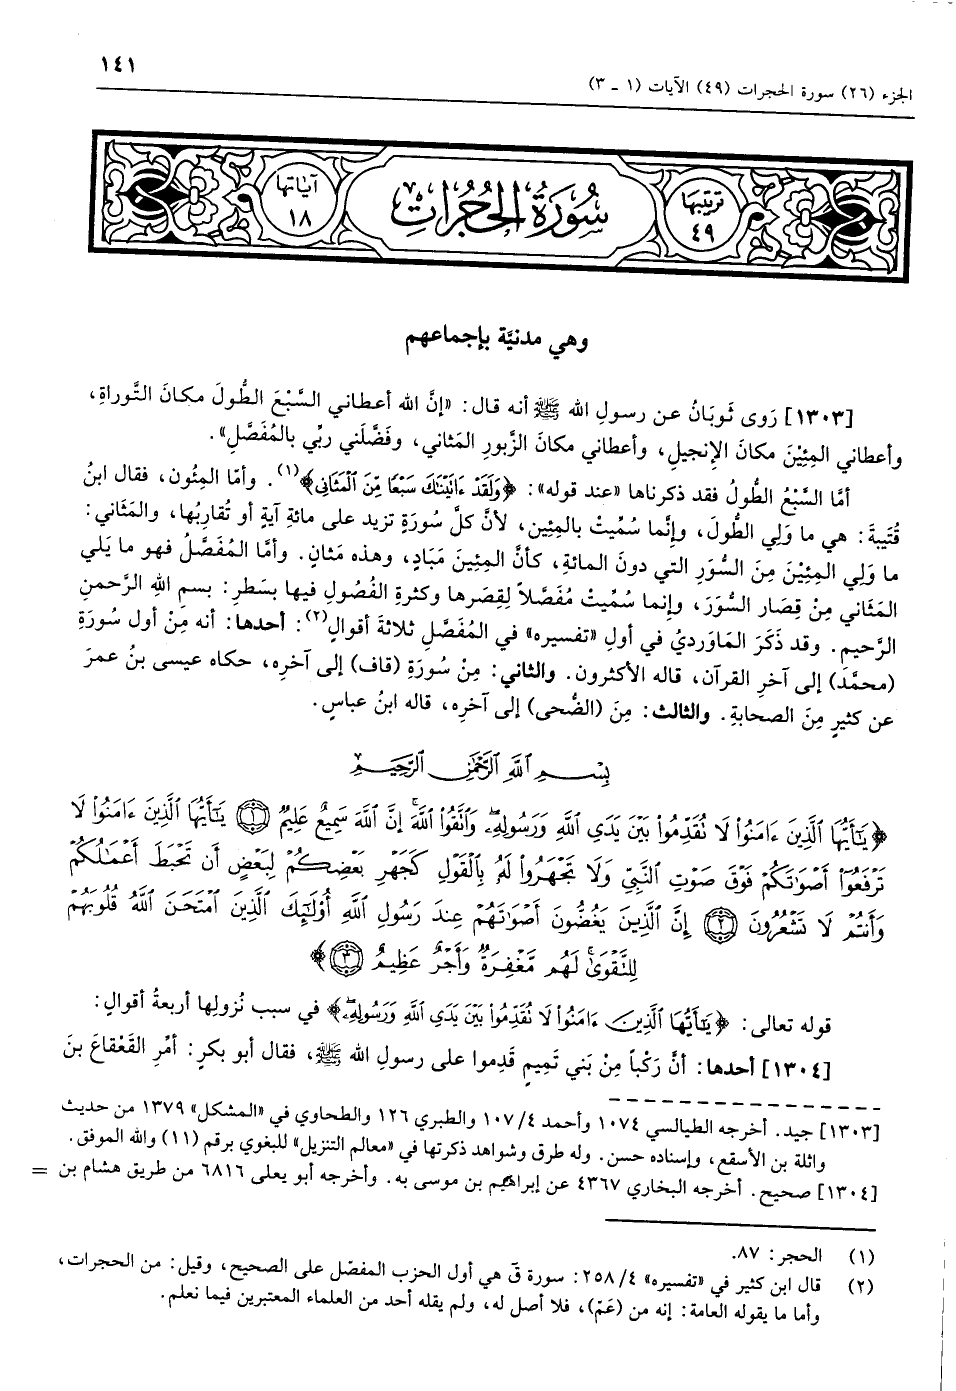 ١٤١
الجزء (٢٦) سورة الحجرات (٤٩) الآيات (١ ـ ٣)
ترتيبها ٤٩
سُورَةُ الحُجُرات
آياتها ١٨
وهي مدنيَّة بإجماعهم
[١٣٠٣] رَوى ثَوبَانُ عن رسولِ الله ﷺ أنه قال: «إنَّ الله أعطاني السَّبْعَ الطُّولَ مكانَ التَّوراةِ،
وأعطاني المِئِيْنَ مكانَ الإنجيل، وأعطاني مكانَ الزَّبورِ المَثاني، وفَضَّلَني ربِّي بالمُفَصَّلِ».
أمَّا السَّبْعُ الطُّولُ فقد ذكرناها «عند قوله»: ﴿وَلَقَدْ ءَانَيْنَٰكَ سَبْعًا مِّنَ ٱلْمَثَانِى﴾(١). وأمّا المِئُون، فقال ابنُ
قُتَيبةَ: هي ما وَلي الطُّولَ، وإنَّما سُمِّيتْ بالمِئِين، لأنَّ كلَّ سُورَةٍ تزيد على مائةِ آيةٍ أو تُقاربُها، والمَثاني:
ما وَلي المِئِيْنَ مِنَ السُّوَرِ التي دون المائة، كأنَّ المِئينَ مَبَادٍ، وهذه مَثانٍ. وأمَّا المُفَصَّلُ فهو ما يَلي
المَثاني مِنْ قِصَار السُّوَرَ، وإنما سُمِّيتْ مُفَصَّلاً لِقِصَرها وكثرةِ الفُصُولِ فيها بسَطرِ: بسم اللهِ الرَّحمنِ
الرَّحيم. وقد ذَكَرَ المَاوَرديُ في أولِ «تفسيره» في المُفَصَّلِ ثلاثةَ أقوالٍ(٢): أحدها: أنه مِنْ أول سُورَةِ
(محمَّدَ) إلى آخرِ القرآن، قاله الأكثرون. والثاني: مِنْ سُورَةِ (قاف) إلى آخرِه، حكاه عيسى بنُ عمرَ
عن كثيرٍ مِنَ الصحابةِ. والثالث: مِنَ (الضُّحى) إلى آخرِه، قاله ابنُ عباسٍ.
بِسْمِ ٱللَّهِ ٱلرَّحْمَٰنِ ٱلرَّحِيمِ
﴿يَٰٓأَيُّهَا ٱلَّذِينَ ءَامَنُوا۟ لَا نُقَدِّمُوا۟ بَيْنَ يَدَىِ ٱللَّهِ وَرَسُولِهِۦ وَٱنَّقُوا۟ ٱللَّهَ ۚ إِنَّ ٱللَّهَ سَمِيعٌ عَلِيمٌ ﴿١﴾ يَٰٓأَيُّهَا ٱلَّذِينَ ءَامَنُوا۟ لَا
تَرْفَعُوٓا۟ أَصْوَٰتَكُمْ فَوْقَ صَوْتِ ٱلنَّبِىِّ وَلَا تَجْهَرُوا۟ لَهُۥ بِٱلْقَوْلِ كَجَهْرِ بَعْضِكُمْ لِبَعْضٍ أَن تَحْبَطَ أَعْمَٰلُكُمْ
وَأَنتُمْ لَا تَشْعُرُونَ ﴿٢﴾ إِنَّ ٱلَّذِينَ يَغُضُّونَ أَصْوَٰتَهُمْ عِندَ رَسُولِ ٱللَّهِ أُو۟لَٰٓئِكَ ٱلَّذِينَ ٱمْتَحَنَ ٱللَّهُ قُلُوبَهُمْ
لِلنَّقْوَىٰ ۚ لَهُم مَّغْفِرَةٌ وَأَجْرٌ عَظِيمٌ ﴿٣﴾﴾
قوله تعالى: ﴿يَٰٓأَيُّهَا ٱلَّذِينَ ءَامَنُوا۟ لَا نُقَدِّمُوا۟ بَيْنَ يَدَىِ ٱللَّهِ وَرَسُولِهِۦ﴾ في سبب نُزولِها أربعةُ أقوالٍ:
[١٣٠٤] أحدها: أنَّ رَكْباً مِنْ بَني تَميمٍ قَدِموا على رسولِ الله ﷺ، فقال أبو بكرٍ: أَمِّرِ القَعْقاعَ بنَ
[١٣٠٣] جيد. أخرجه الطيالسي ١٠٧٤ وأحمد ١٠٧/٤ والطبري ١٢٦ والطحاوي في «المشكل» ١٣٧٩ من حديث
واثلة بن الأسقع، وإسناده حسن. وله طرق وشواهد ذكرتها في «معالم التنزيل» للبغوي برقم (١١) والله الموفق.
[١٣٠٤] صحيح. أخرجه البخاري ٤٣٦٧ عن إبراهيم بن موسى به. وأخرجه أبو يعلى ٦٨١٦ من طريق هشام بن =
(١) الحجر: ٨٧.
(٢) قال ابن كثير في «تفسيره» ٢٥٨/٤: سورة قَ هي أول الحزب المفصّل على الصحيح، وقيل: من الحجرات،
وأما ما يقوله العامة: إنه من (عَمَّ)، فلا أصل له، ولم يقله أحد من العلماء المعتبرين فيما نعلم.